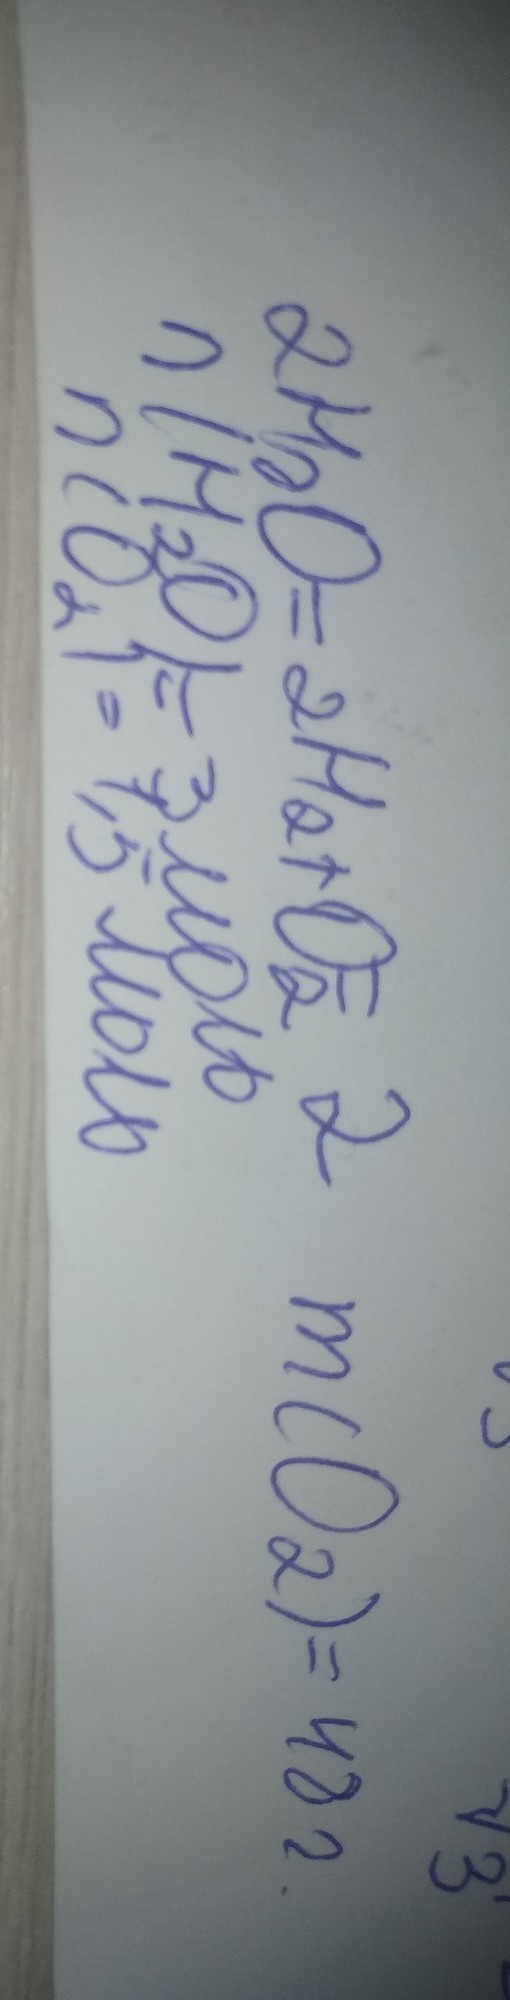 2H₂O = 2H₂ + O₂ = 2 m(O₂) = 48 г.
n(H₂O) = 3 моль
n(O₂) = 1,5 моль